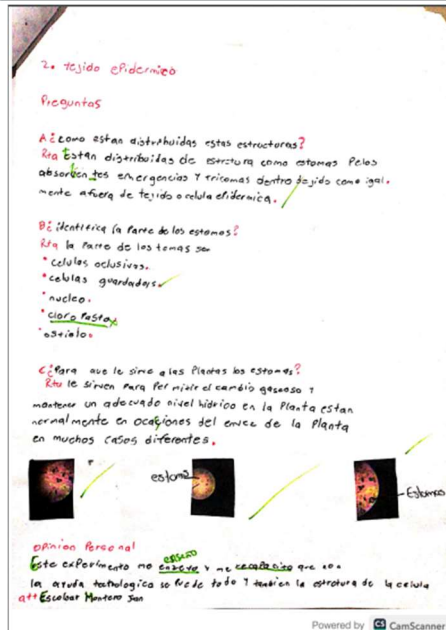 2. tejido ePidermico
Preguntas
A ¿como estan distribuidas estas estructuras?
Rta Están distribuidas de estrutura como estomas Pelos
absorbentes emergencias y tricomas dentro de jido como igal.
mente afuera de tejido o celula ePidermica.
B ¿identifica la Parte de los estomas?
Rta la Parte de los tomas son
• celulas oclusivas.
• celulas guardadoras.
• nucleo.
• cloro Pasto
• ostiolo.
C ¿Para que le sirve a las Plantas los estomas?
Rta le sirven Para Permitir el cambio gaseoso y
mantener un adecuado nivel hidrico en la Planta estan
normalmente en ocaciones del envez de la Planta
en muchos casos diferentes.
estoma
Estomas
oPinion Personal
enseño
Este exPerimento me y me que con
la ayuda se Puede todo y tambien la estrotura de la celula
att Escobar Montero Juan
Powered by CS CamScanner